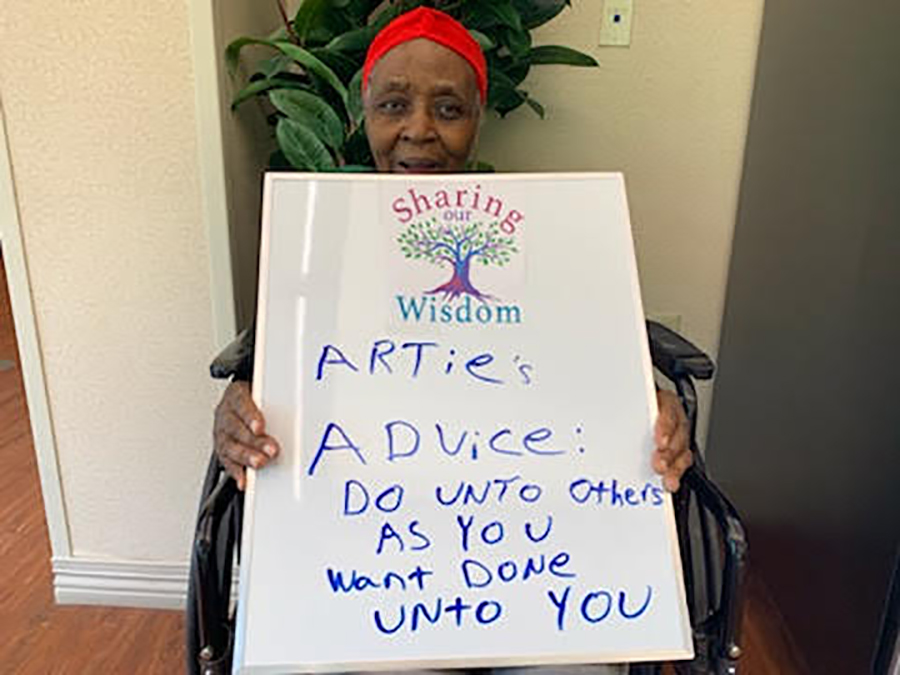 Sharing
our
Wisdom
ARTie's
ADVice:
DO UNTO Others
AS YOU
Want DONe
UNto YOU